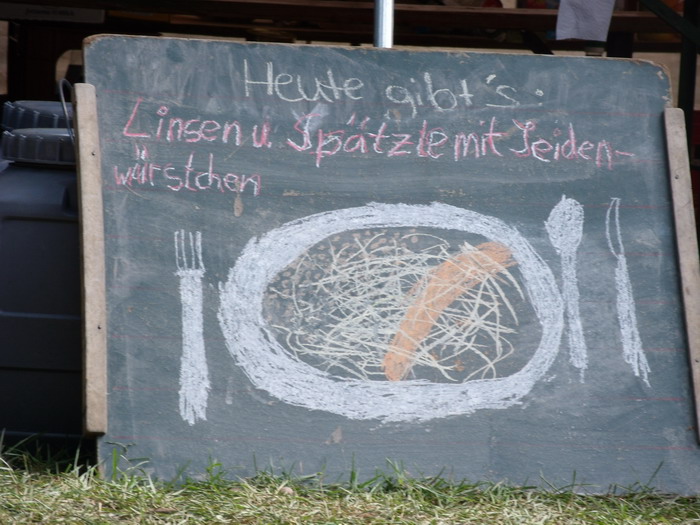 Heute gibt's:
Linsen u. Spätzle mit Seiden-
würstchen